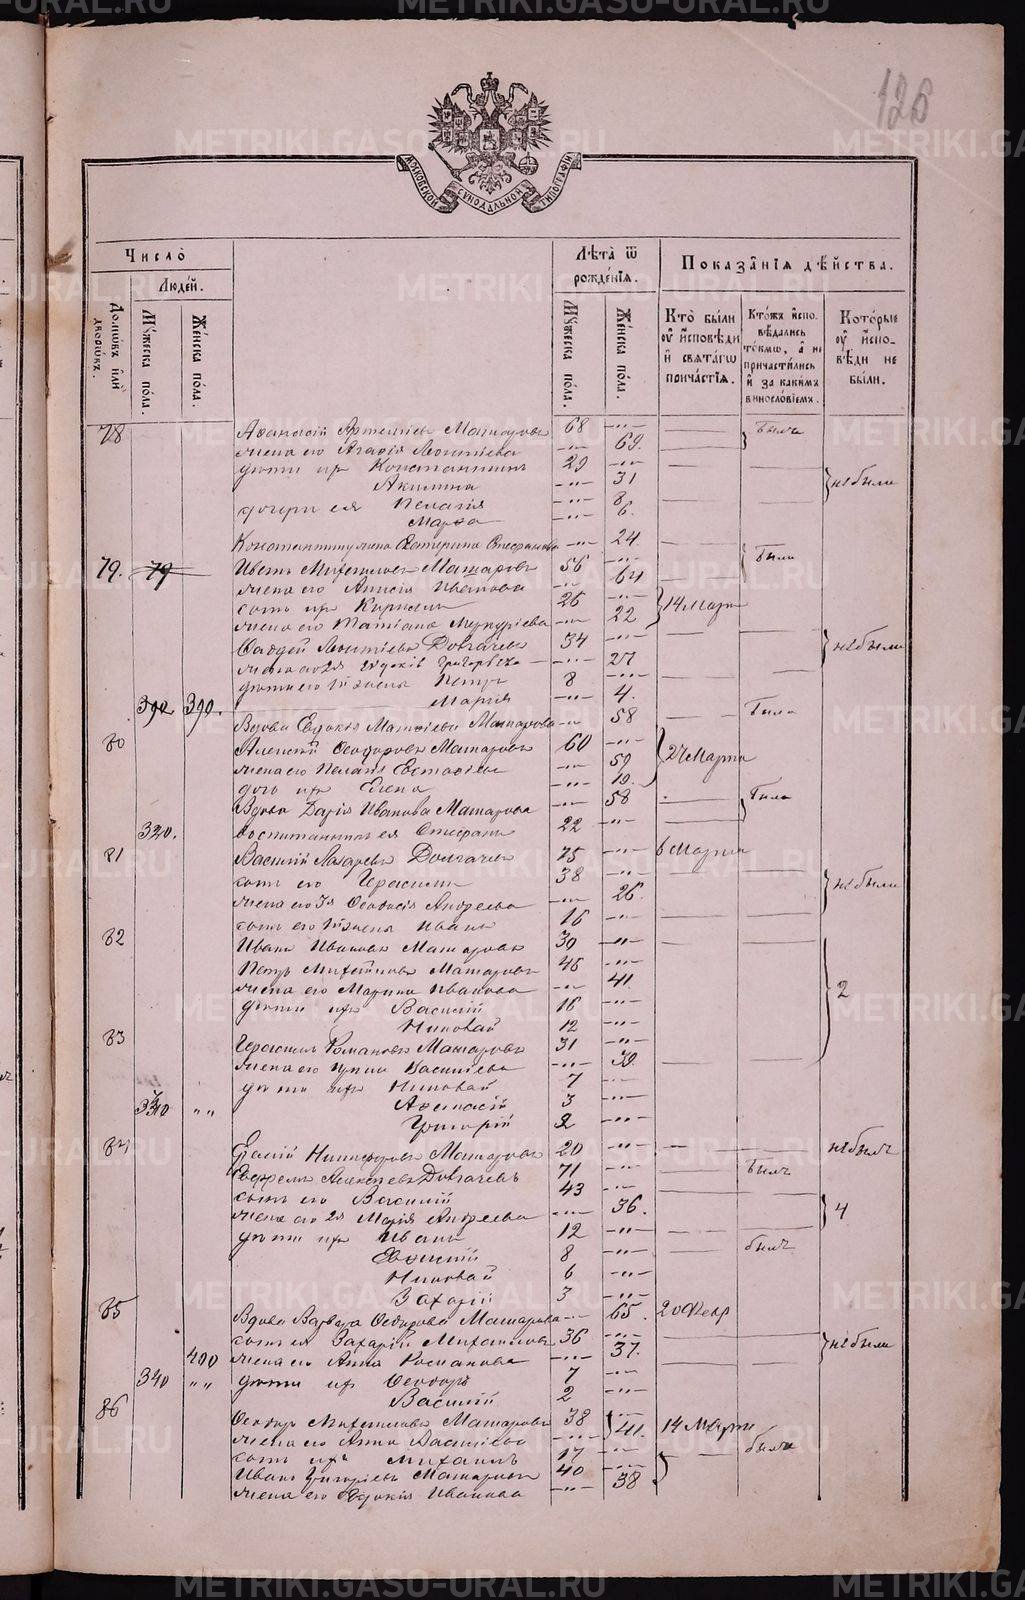 126
МОСКОВСКОЙ СѴНОДАЛЬНОЙ ТИПОГРАФІИ
Число̀
Людей.
Домѡвъ и҆лѝ дворѡвъ.
Мꙋжеска пола.
Женска пола.
Лѣта ѿ рожденїѧ.
Мꙋжеска пола.
Женска пола.
Показанїѧ дѣйства.
Кто̀ были оу҆ и҆сповѣди и҆ свѧтагѡ причастїѧ.
Ктожъ и҆сповѣдались токмѡ, а҆ не причастились и҆ за какимъ винословїемъ.
Которые оу҆ и҆сповѣди не были.
78 Аѳанасій Артемьевъ Машаровъ 68 былъ
жена его Агафія Леонтьева 69.
дѣти ихъ Константинъ 29
Акилина 31 не были
дочери ея Пелагія 8
Марѳа 6.
Константину жена Екатерина Стефанова 24
79. 79 Иванъ Михайловъ Машаровъ 56 были
жена его Анисія Иванова 64
сынъ ихъ Кириллъ 26 14 Марта
жена его Татіана Меркуріева 22
Фаддей Леонтьевъ Долгачевъ 34 не были
жена его 2я Евдокія Григорьева 27
дѣти его 1й жены Петръ 8
Марія 4.
390. 390.
Вдова Евдокія Матѳіева Машарова 58 была
80 Алексій Ѳеодоровъ Машаровъ 60 24 Марта
жена его Пелагія Евстафіева 59
дочь ихъ Елена 19.
Вдова Дарія Иванова Машарова 58 были
320. воспитанникъ ея Стефанъ 22
81 Василій Лазаревъ Долгачевъ 75 6 Марта
сынъ его Герасимъ 38 не были
жена его 3я Ѳеодосія Андреева 26.
сынъ его 1й жены Иванъ 16
82 Иванъ Ивановъ Машаровъ 39
Петръ Михайловъ Машаровъ 46
жена его Марина Иванова 41. 2
дѣти ихъ Василій 16
Николай 12
83 Герасимъ Романовъ Машаровъ 31
жена его Ирина Васильева 39.
дѣти ихъ Николай 7
Аѳанасій 3
Григорій 2
84 Никифоровъ Машаровъ 20 не былъ
Евфремъ Алексѣевъ Долгачевъ 71 былъ
сынъ его Василій 43
жена его 2я Марія Андреева 36. 4
дѣти ихъ Иванъ 12 былъ
8
Николай 6
Захарій 3
85 Вдова Варвара Ѳедорова Машарова 65. 20 Февр
сынъ ея Захарій Михайловъ 36 не были
400 жена его Анна Романова 37.
340 дѣти ихъ Ѳеодоръ 7
Василій 2
86 Ѳеодоръ Михайловъ Машаровъ 38 14 Марта
жена его Анна Васильева 41.
сынъ ихъ Михаилъ 17
Иванъ Григорьевъ Машаровъ 40
жена его Евдокія Иванова 38
METRIKI.GASO-URAL.RU